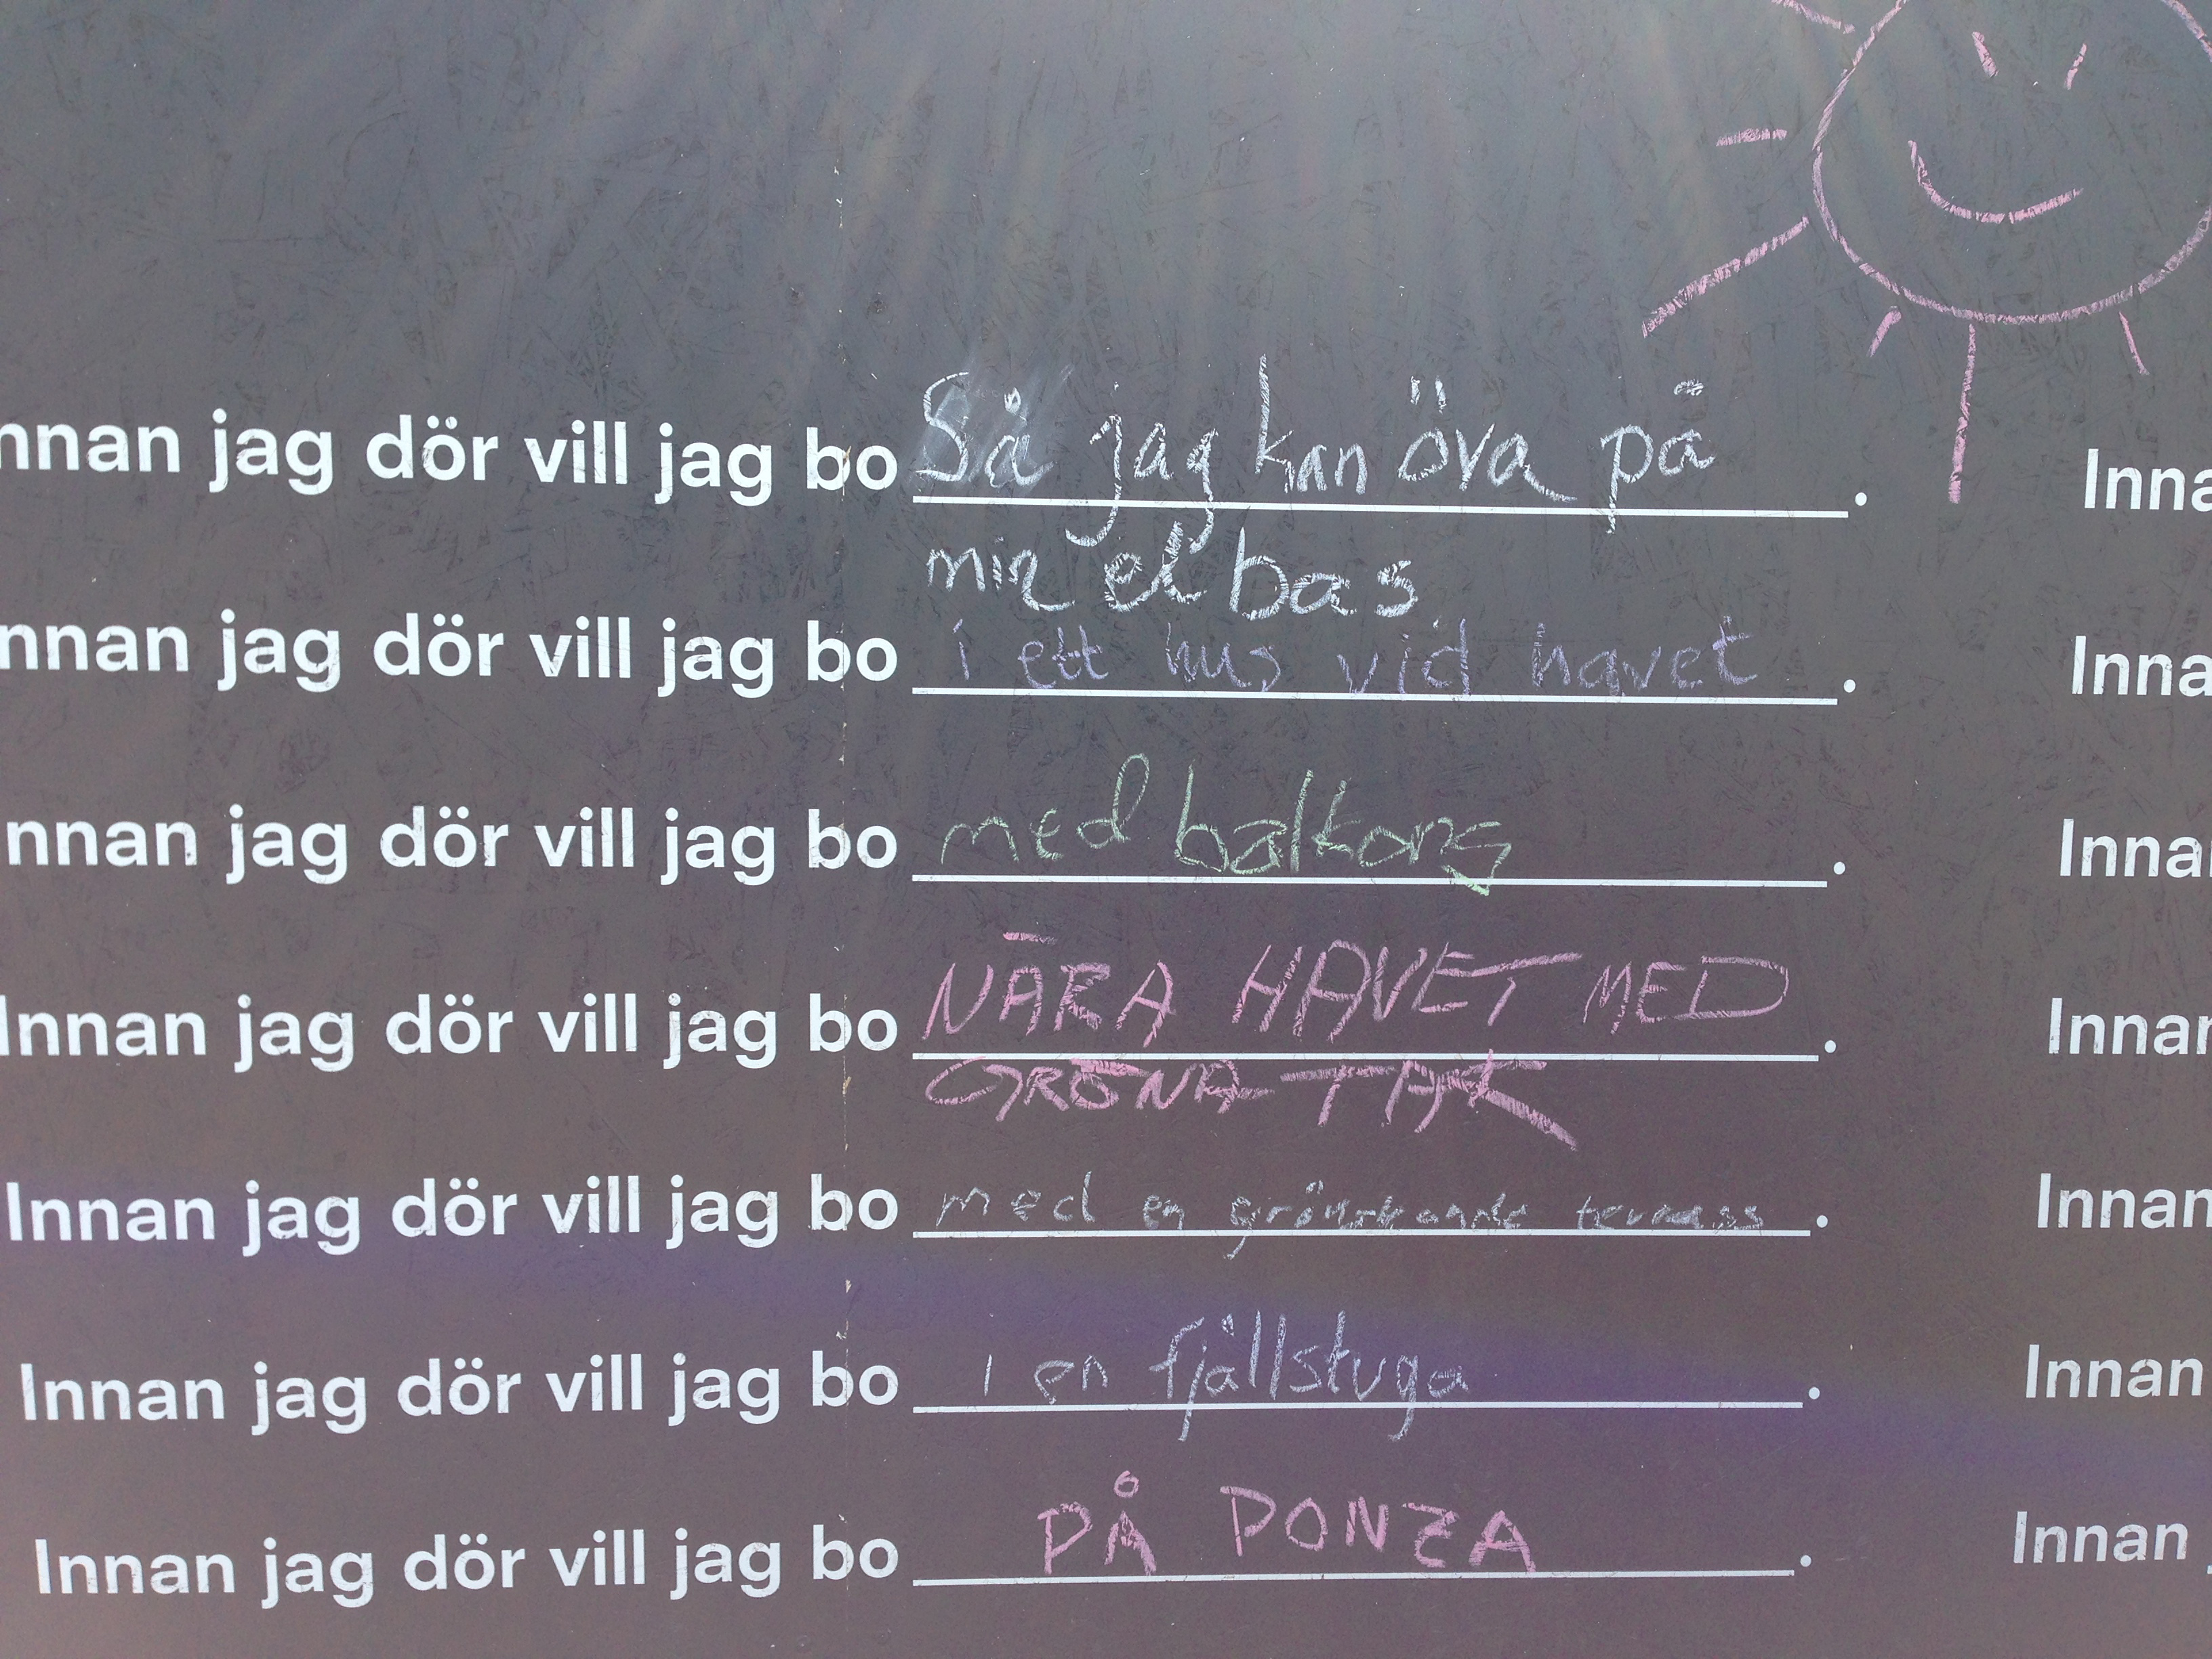 nnan jag dör vill jag bo Så jag kan öva på. Inna
min elbas
nnan jag dör vill jag bo i ett hus vid havet. Inna
nnan jag dör vill jag bo med balkong. Inna
Innan jag dör vill jag bo NÄRA HAVET MED. Innan
GRÖNA TAK
Innan jag dör vill jag bo med en grönskande terrass. Innan
Innan jag dör vill jag bo i en fjällstuga. Innan
Innan jag dör vill jag bo PÅ PONZA. Innan